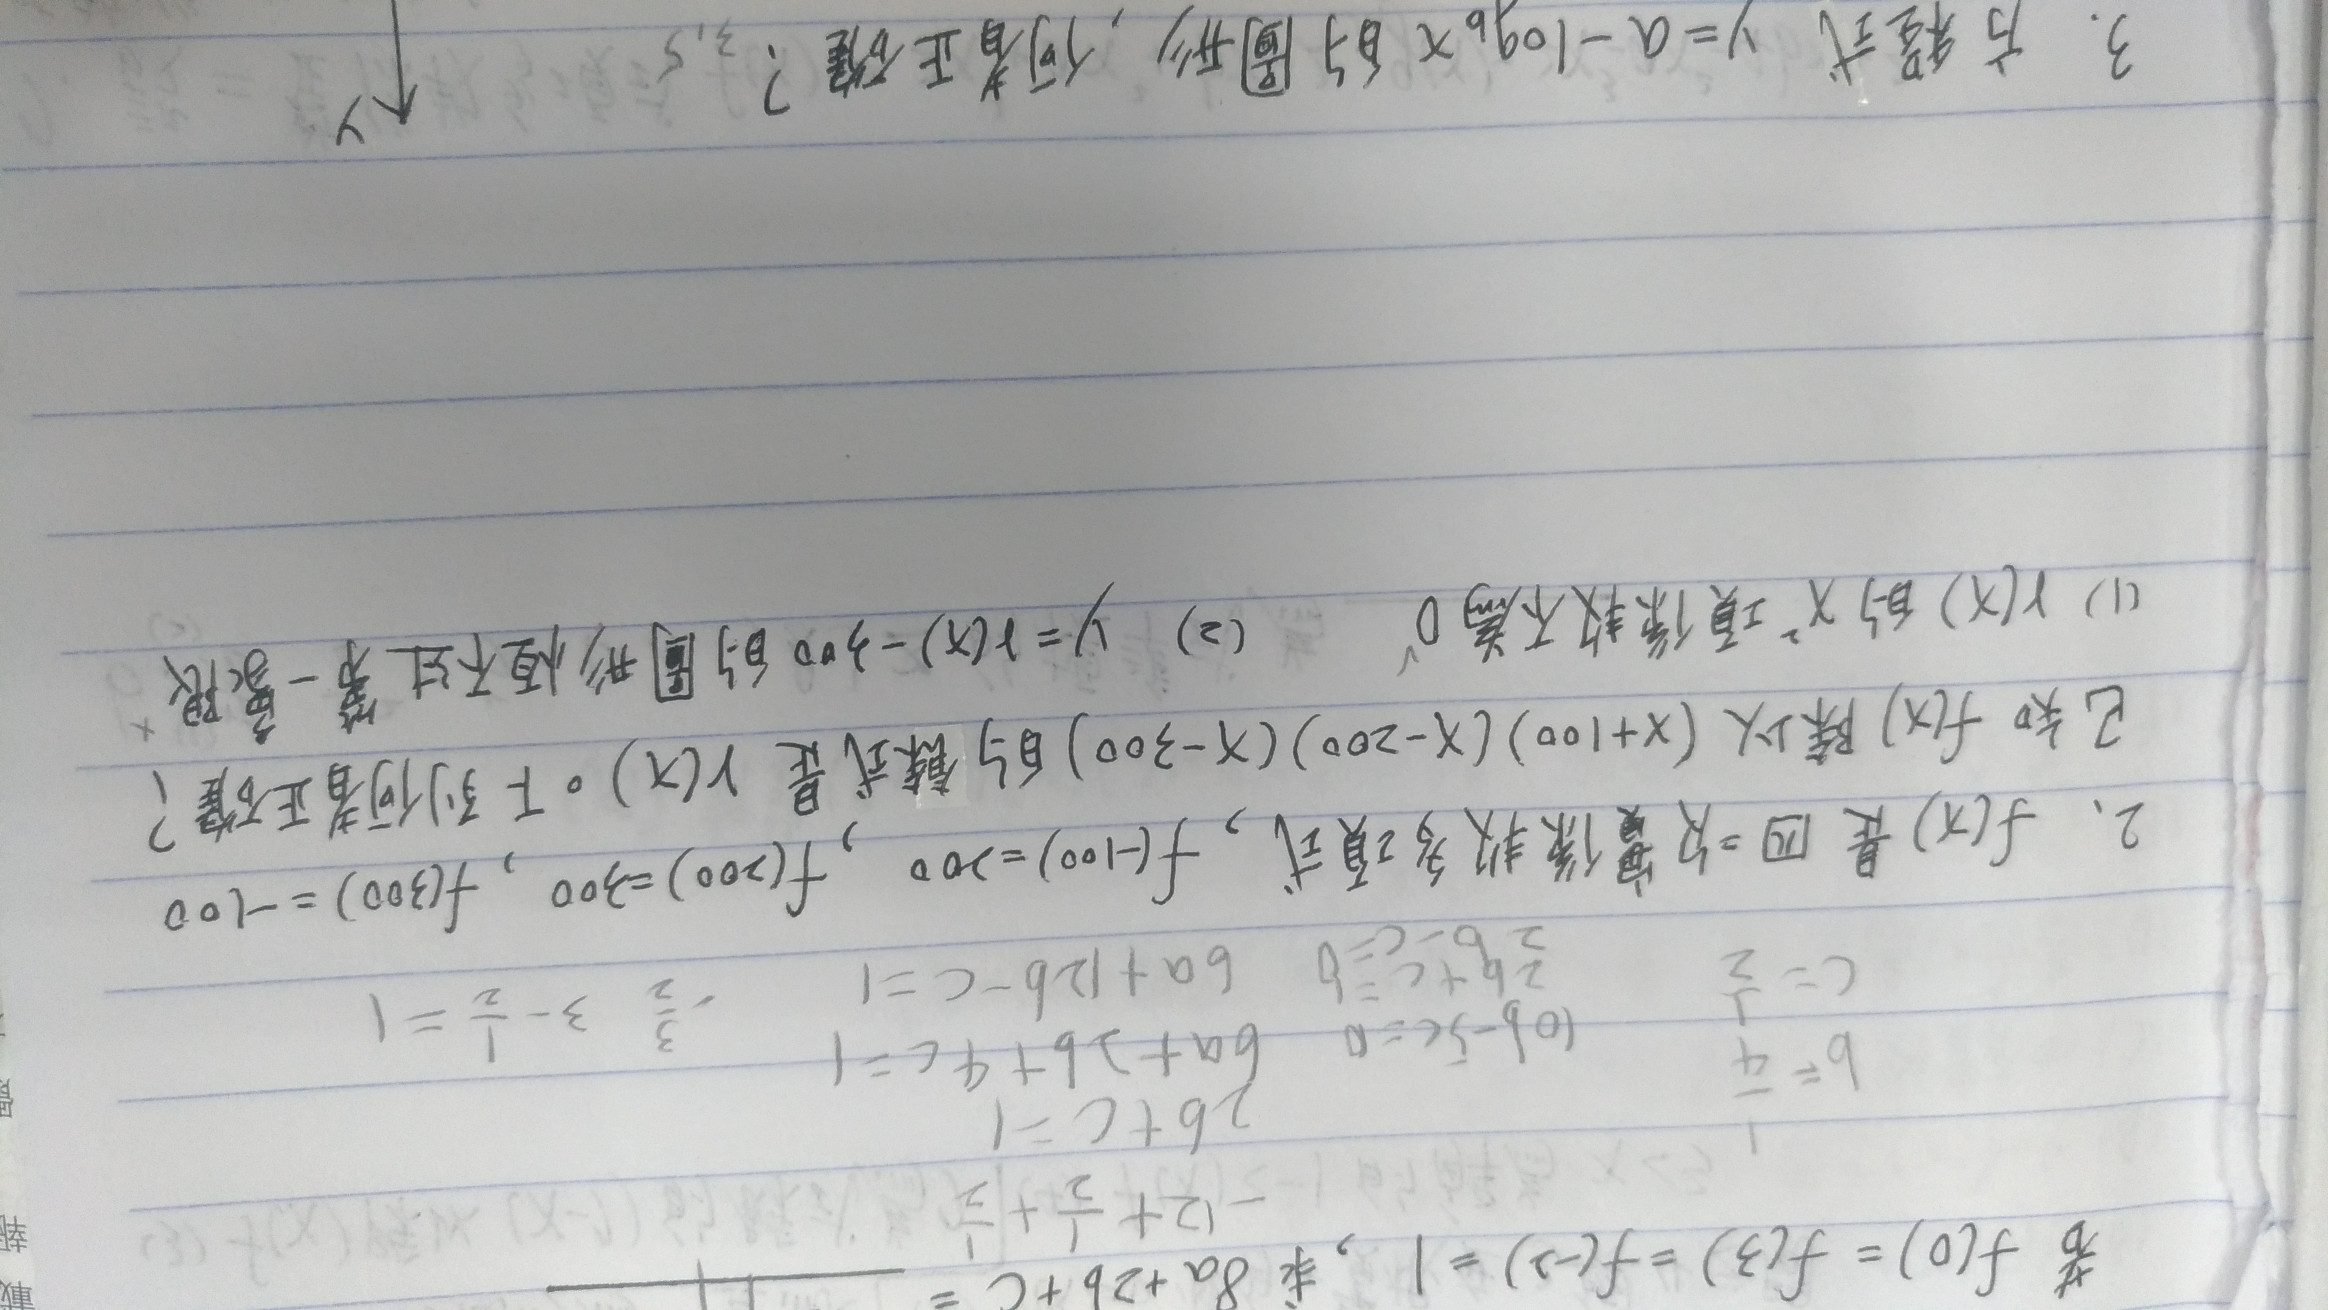 若 f(0) = f(3) = f(-2) = 1, 求 8a+2b+c =
-12 + 1/2 + 1/2
2b+c=1
b = 1/4 10b-5c=0 6a+2b+4c=1
c = 1/2 6a+12b-c=1 3/2 3 - 1/2 = 1
2、f(x) 是四次實係數多項式, f(-100)=200, f(200)=300, f(300)=-100
已知 f(x) 除以 (x+100)(x-200)(x-300) 的餘式是 r(x)。下列何者正確?
(1) r(x) 的 x² 項係數不為 0 (2) y = r(x)-300 的圖形恆不過第一象限
Y
3. 方程式 y = a - log_b x 的圖形, 何者正確? 3,5